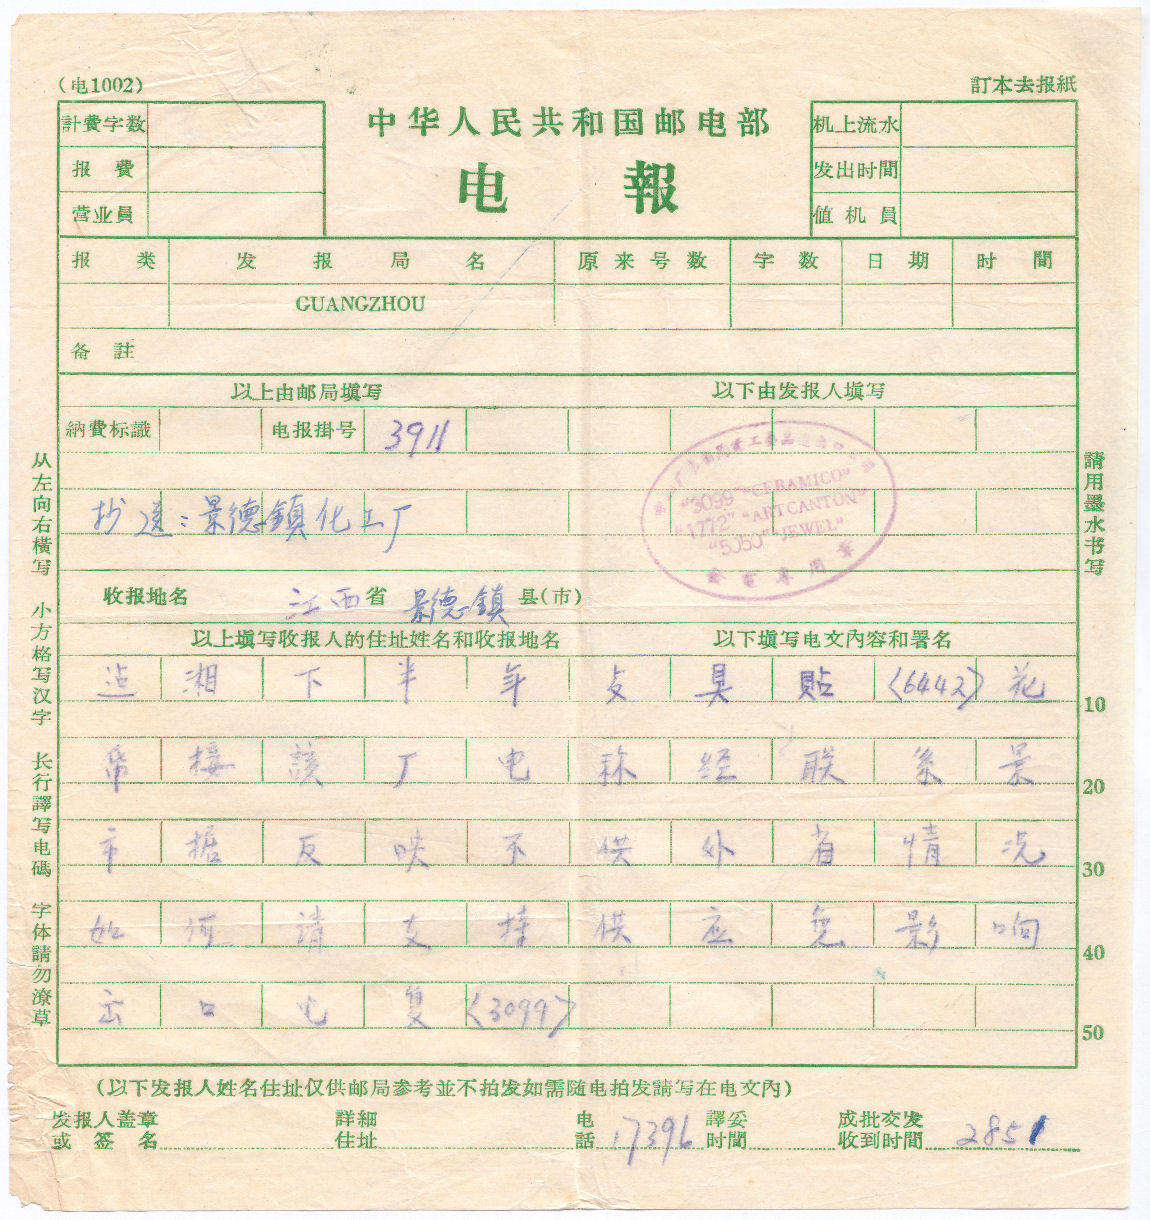 （电1002）
訂本去报紙
計費字数
报 費
营业员
中华人民共和国邮电部
电 報
机上流水
发出时間
値机員
报类 发报局名 原来号数 字数 日期 时間
GUANGZHOU
备註
以上由邮局填写 以下由发报人填写
納費标識 电报掛号 3911
抄送：景德鎮化工厂
"3099" "CERAMICO"
"1772" "ART CANTON"
"5050" "JEWEL"
收报地名 江西省 景德鎮 县(市)
以上填写收报人的住址姓名和收报地名 以下填写电文內容和署名
湘下半年 具貼〈6442〉花 10
接該厂电称经联系景 20
市据反映不供外省情况 30
如何請支持供应免影响 40
出口电复〈3099〉 50
从左向右橫写 小方格写汉字 长行譯写电碼 字体請勿潦草
請用墨水书写
（以下发报人姓名住址仅供邮局参考並不拍发如需随电拍发請写在电文內）
发报人盖章 詳細 电 譯妥 成批交发
或签名 住址 話 17396 时間 收到时間 2851